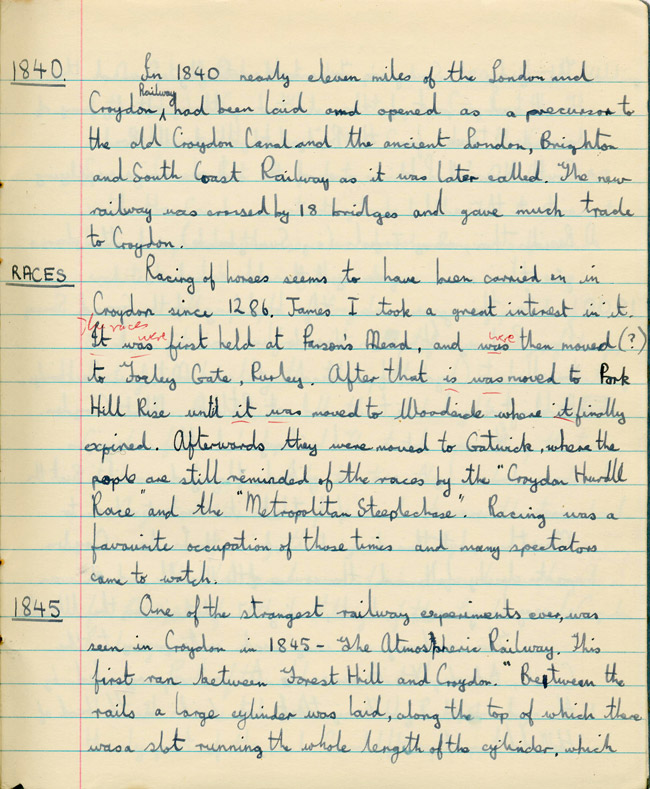 1840. In 1840 nearly eleven miles of the London and
Railway
Croydon, had been laid and opened as a precursor to
the old Croydon Canal and the ancient London, Brighton
and South Coast Railway as it was later called. The new
railway was crossed by 18 bridges and gave much trade
to Croydon.
RACES Racing of horses seems to have been carried on in
Croydon since 1286. James I took a great interest in it.
The races were were
It was first held at Parson's Mead, and was then moved (?)
to Foxley Gate, Purley. After that is was moved to Park
Hill Rise until it was moved to Woodside where it finally
expired. Afterwards they were moved to Gatwick, where the
people are still reminded of the races by the "Croydon Hurdle
Race" and the "Metropolitan Steeplechase". Racing was a
favourite occupation of those times and many spectators
came to watch.
1845 One of the strangest railway experiments ever, was
seen in Croydon in 1845 - The Atmospheric Railway. This
first ran between Forest Hill and Croydon. "Between the
rails a large cylinder was laid, along the top of which there
was a slot running the whole length of the cylinder, which